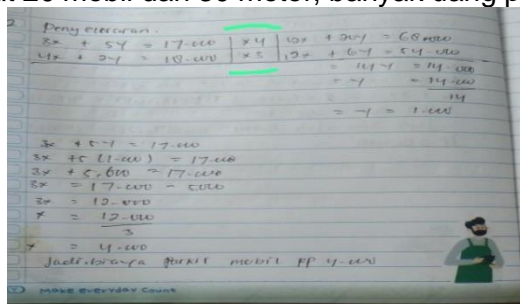 20 mobil dan 30 motor, banyak uang p
2 Penyelesaian.
3x + 5y = 17.000 | x4 | 12x + 20y = 68.000
4x + 2y = 18.000 | x3 | 12x + 6y = 54.000
= 14y = 14.000
= y = 14.000
14
= y = 1.000
3x + 5y = 17.000
3x + 5 (1.000) = 17.000
3x + 5.000 = 17.000
3x = 17.000 - 5.000
3x = 12.000
x = 12.000
3
x = 4.000
Jadi, biaya parkir mobil Rp 4.000
MAKE EVERYDAY COUNT